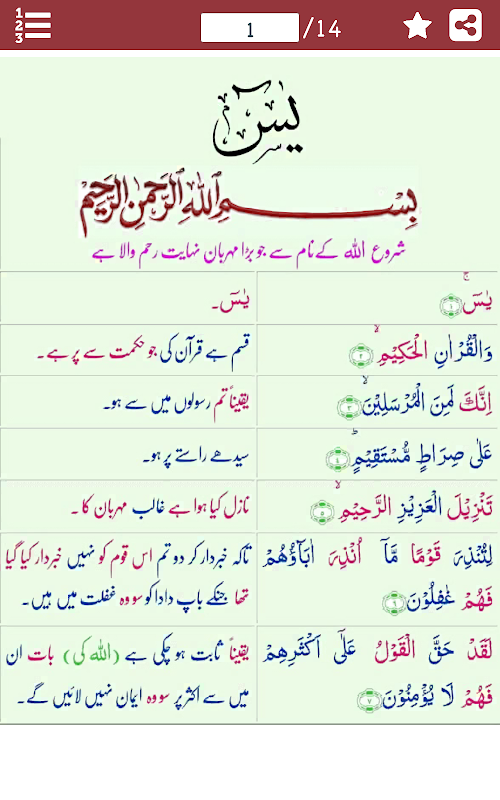 1 2 3
1 /14
یٰسٓ
بِسْمِ اللهِ الرَّحْمٰنِ الرَّحِيْمِ
شروع اللہ کے نام سے جو بڑا مہربان نہایت رحم والا ہے
یٰسٓ ۚ ﴿۱﴾
یٰسٓ۔
وَالْقُرْاٰنِ الْحَكِيْمِ ۙ ﴿۲﴾
قسم ہے قرآن کی جو حکمت سے پر ہے۔
اِنَّكَ لَمِنَ الْمُرْسَلِيْنَ ۙ ﴿۳﴾
یقیناً تم رسولوں میں سے ہو۔
عَلٰى صِرَاطٍ مُّسْتَقِيْمٍ ؕ ﴿۴﴾
سیدھے راستے پر ہو۔
تَنْزِيْلَ الْعَزِيْزِ الرَّحِيْمِ ۙ ﴿۵﴾
نازل کیا ہوا ہے غالب مہربان کا۔
لِتُنْذِرَ قَوْمًا مَّاۤ اُنْذِرَ اٰبَآؤُهُمْ
فَهُمْ غٰفِلُوْنَ ﴿۶﴾
تاکہ خبردار کر دو تم اس قوم کو نہیں خبردار کیا گیا
تھا جنکے باپ دادا کو سو وہ غفلت میں ہیں۔
لَقَدْ حَقَّ الْقَوْلُ عَلٰٓى اَكْثَرِهِمْ
فَهُمْ لَا يُؤْمِنُوْنَ ﴿۷﴾
یقیناً ثابت ہو چکی ہے (اللہ کی) بات ان
میں سے اکثر پر سو وہ ایمان نہیں لائیں گے۔